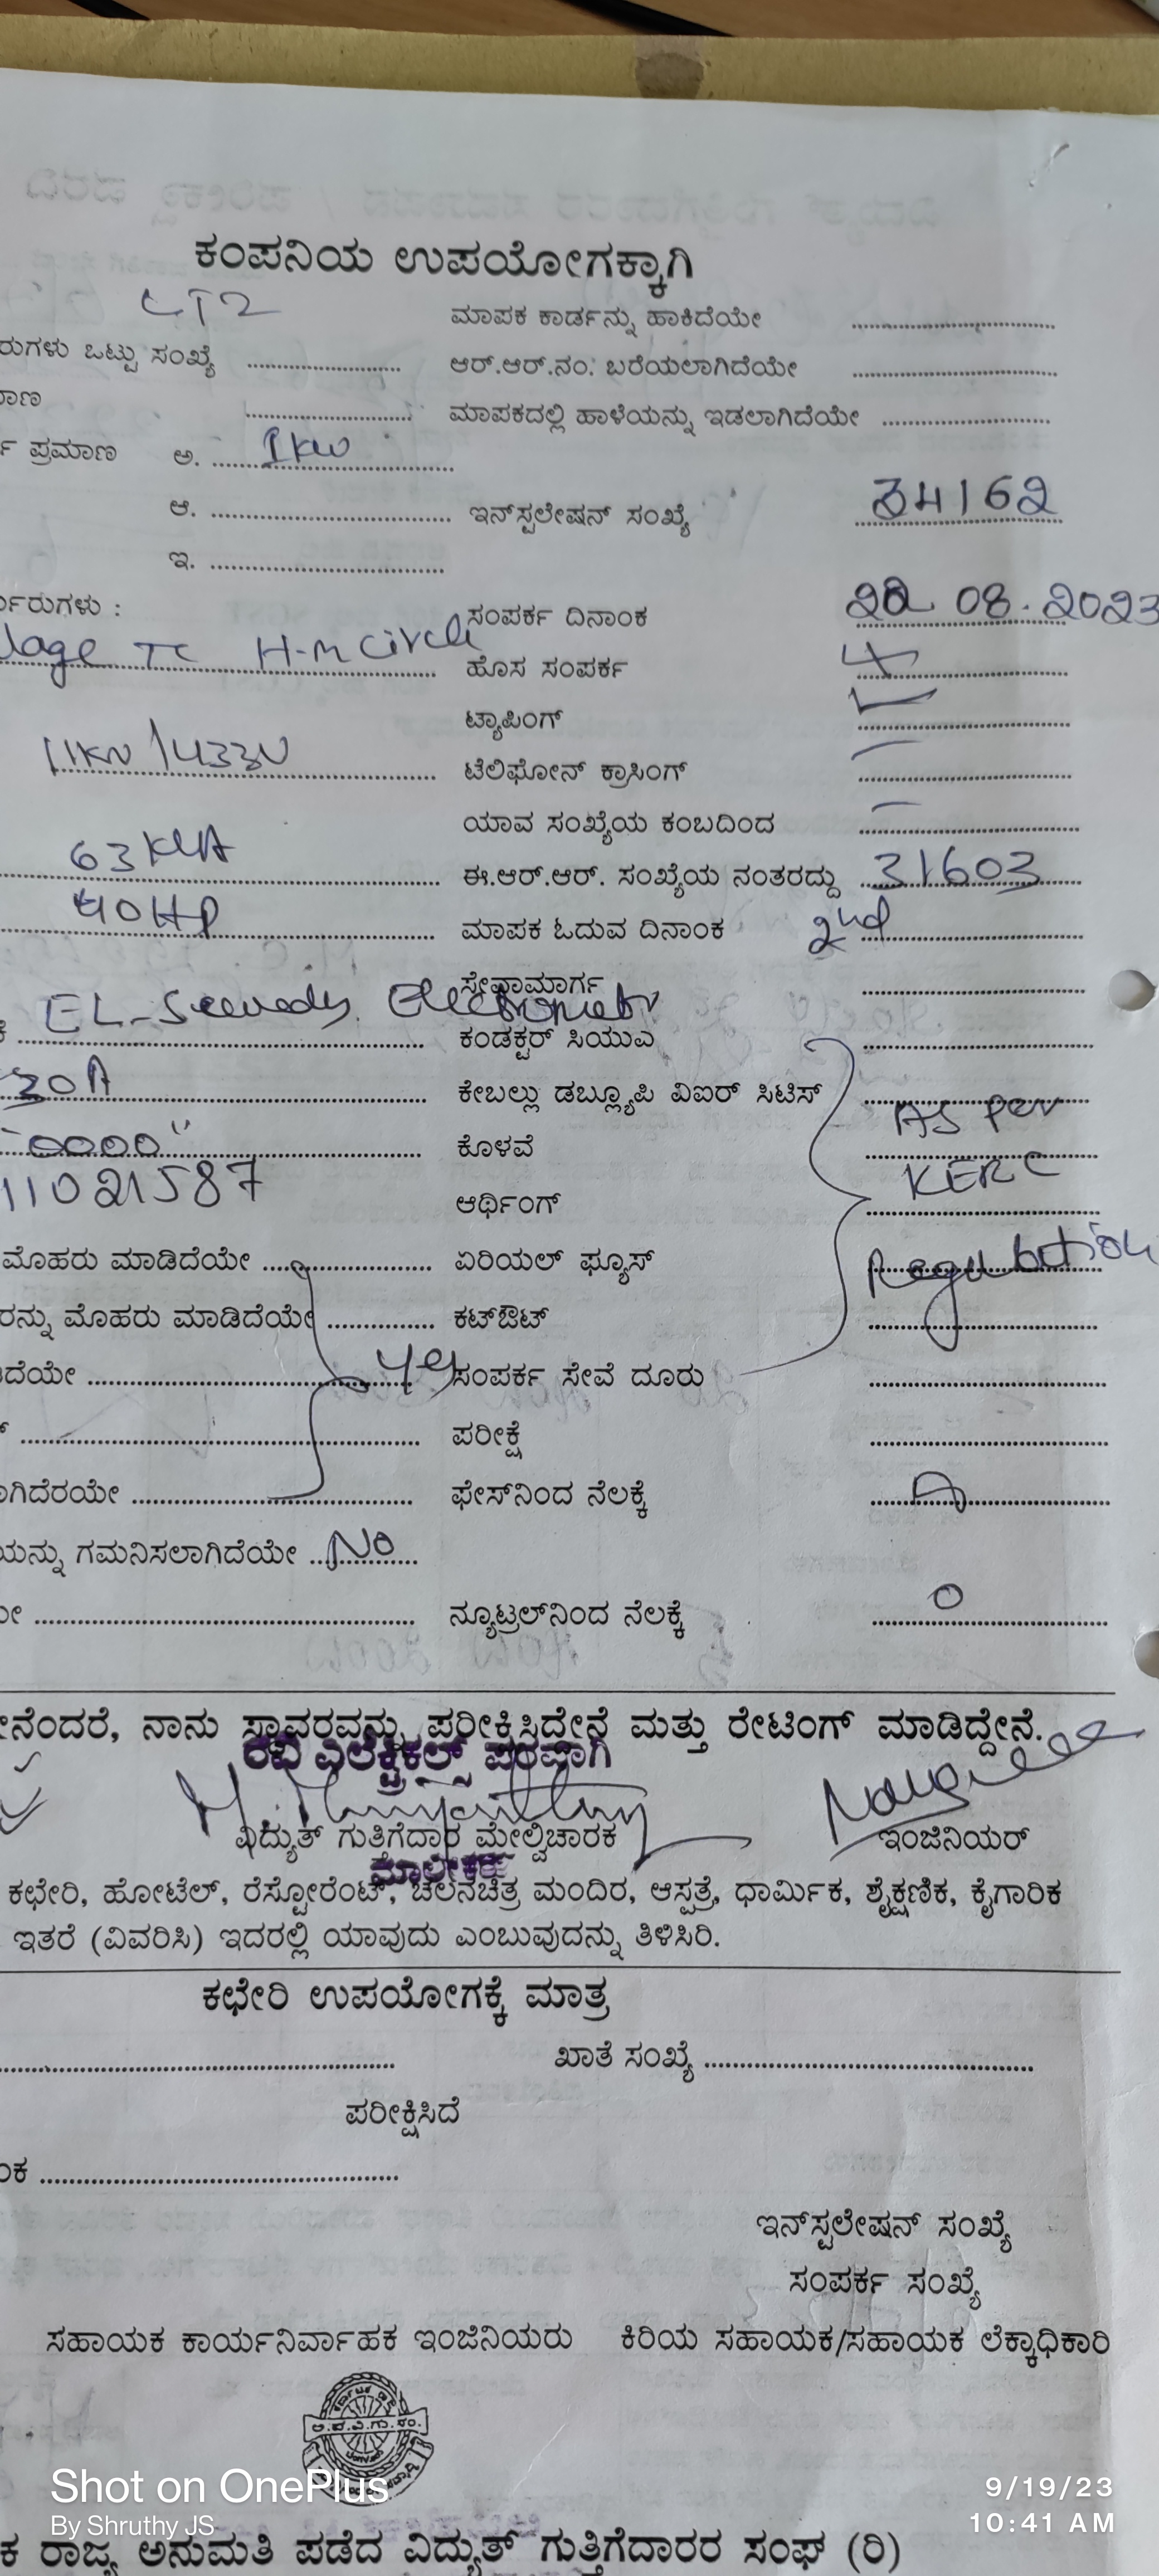 ಕಂಪನಿಯ ಉಪಯೋಗಕ್ಕಾಗಿ
LT2
ಮಾಪಕ ಕಾರ್ಡನ್ನು ಹಾಕಿದೆಯೇ
ರುಗಳು ಒಟ್ಟು ಸಂಖ್ಯೆ ಆರ್.ಆರ್.ನಂ. ಬರೆಯಲಾಗಿದೆಯೇ
ಮಾಣ ಮಾಪಕದಲ್ಲಿ ಹಾಳೆಯನ್ನು ಇಡಲಾಗಿದೆಯೇ
ಪ್ರಮಾಣ ಅ. 1kw
ಆ. ಇನ್‌ಸ್ಟಲೇಷನ್ ಸಂಖ್ಯೆ 34162
ಇ.
ರುಗಳು : ಸಂಪರ್ಕ ದಿನಾಂಕ 22 08.2023
lage TC H-M Circle ಹೊಸ ಸಂಪರ್ಕ
ಟ್ಯಾಪಿಂಗ್
11KV/433V ಟೆಲಿಫೋನ್ ಕ್ರಾಸಿಂಗ್ —
ಯಾವ ಸಂಖ್ಯೆಯ ಕಂಬದಿಂದ —
63 KVA ಈ.ಆರ್.ಆರ್. ಸಂಖ್ಯೆಯ ನಂತರದ್ದು 31603
40HP ಮಾಪಕ ಓದುವ ದಿನಾಂಕ 2nd
ಸೇವಾಮಾರ್ಗ
EL-Sewedy Electrometer ಕಂಡಕ್ಟರ್ ಸಿಯುಎ
30A ಕೇಬಲ್ಲು ಡಬ್ಲ್ಯೂಪಿ ವಿಐರ್ ಸಿಟಿಸ್ As per
0000" ಕೊಳವೆ KERC
11021587 ಆರ್ಥಿಂಗ್
ಮೊಹರು ಮಾಡಿದೆಯೇ ಏರಿಯಲ್ ಫ್ಯೂಸ್ Regulation
ರನ್ನು ಮೊಹರು ಮಾಡಿದೆಯೇ ಕಟ್‌ಔಟ್
ದೆಯೇ ಸಂಪರ್ಕ ಸೇವೆ ದೂರು
ಪರೀಕ್ಷೆ
ಗಿದೆರಯೇ ಫೇಸ್‌ನಿಂದ ನೆಲಕ್ಕೆ
ಯನ್ನು ಗಮನಿಸಲಾಗಿದೆಯೇ No
ನ್ಯೂಟ್ರಲ್‌ನಿಂದ ನೆಲಕ್ಕೆ 0
ನೆಂದರೆ, ನಾನು ಸ್ಥಾವರವನ್ನು ಪರೀಕ್ಷಿಸಿದ್ದೇನೆ ಮತ್ತು ರೇಟಿಂಗ್ ಮಾಡಿದ್ದೇನೆ.
ರವಿ ಎಲೆಕ್ಟ್ರಿಕಲ್ಸ್ ಪರವಾಗಿ
ವಿದ್ಯುತ್ ಗುತ್ತಿಗೆದಾರ ಮೇಲ್ವಿಚಾರಕ ಇಂಜಿನಿಯರ್
ಮಾಲೀಕರು
ಕಛೇರಿ, ಹೋಟೆಲ್, ರೆಸ್ಟೋರೆಂಟ್, ಚಲನಚಿತ್ರ ಮಂದಿರ, ಆಸ್ಪತ್ರೆ, ಧಾರ್ಮಿಕ, ಶೈಕ್ಷಣಿಕ, ಕೈಗಾರಿಕ
ಇತರೆ (ವಿವರಿಸಿ) ಇದರಲ್ಲಿ ಯಾವುದು ಎಂಬುವುದನ್ನು ತಿಳಿಸಿರಿ.
ಕಛೇರಿ ಉಪಯೋಗಕ್ಕೆ ಮಾತ್ರ
ಖಾತೆ ಸಂಖ್ಯೆ
ಪರೀಕ್ಷಿಸಿದೆ
ಂಕ
ಇನ್‌ಸ್ಟಲೇಷನ್ ಸಂಖ್ಯೆ
ಸಂಪರ್ಕ ಸಂಖ್ಯೆ
ಸಹಾಯಕ ಕಾರ್ಯನಿರ್ವಾಹಕ ಇಂಜಿನಿಯರು ಕಿರಿಯ ಸಹಾಯಕ/ಸಹಾಯಕ ಲೆಕ್ಕಾಧಿಕಾರಿ
Shot on OnePlus 9/19/23
By Shruthy JS 10:41 AM
ಕ ರಾಜ್ಯ ಅನುಮತಿ ಪಡೆದ ವಿದ್ಯುತ್ ಗುತ್ತಿಗೆದಾರರ ಸಂಘ (ರಿ)